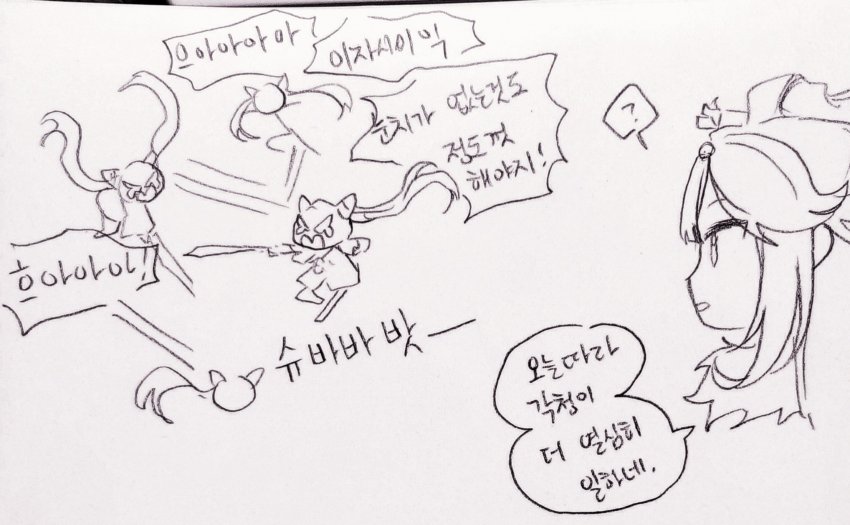 으아아아아!
이자시이익
눈치가 없는것도
정도껏
해야지!
?
흐아아아!
슈바바밧ㅡ
오늘따라
각청이
더 열심히
일하네.